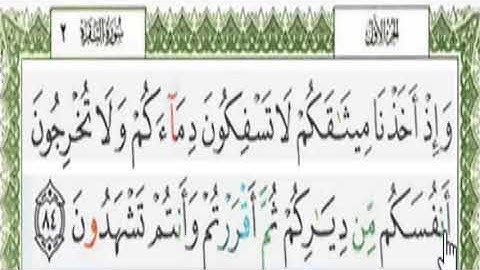 الجزء الأول سورة البقرة ٢
وَإِذْ أَخَذْنَا مِيثَٰقَكُمْ لَا تَسْفِكُونَ دِمَآءَكُمْ وَلَا تُخْرِجُونَ
أَنفُسَكُم مِّن دِيَٰرِكُمْ ثُمَّ أَقْرَرْتُمْ وَأَنتُمْ تَشْهَدُونَ ٨٤